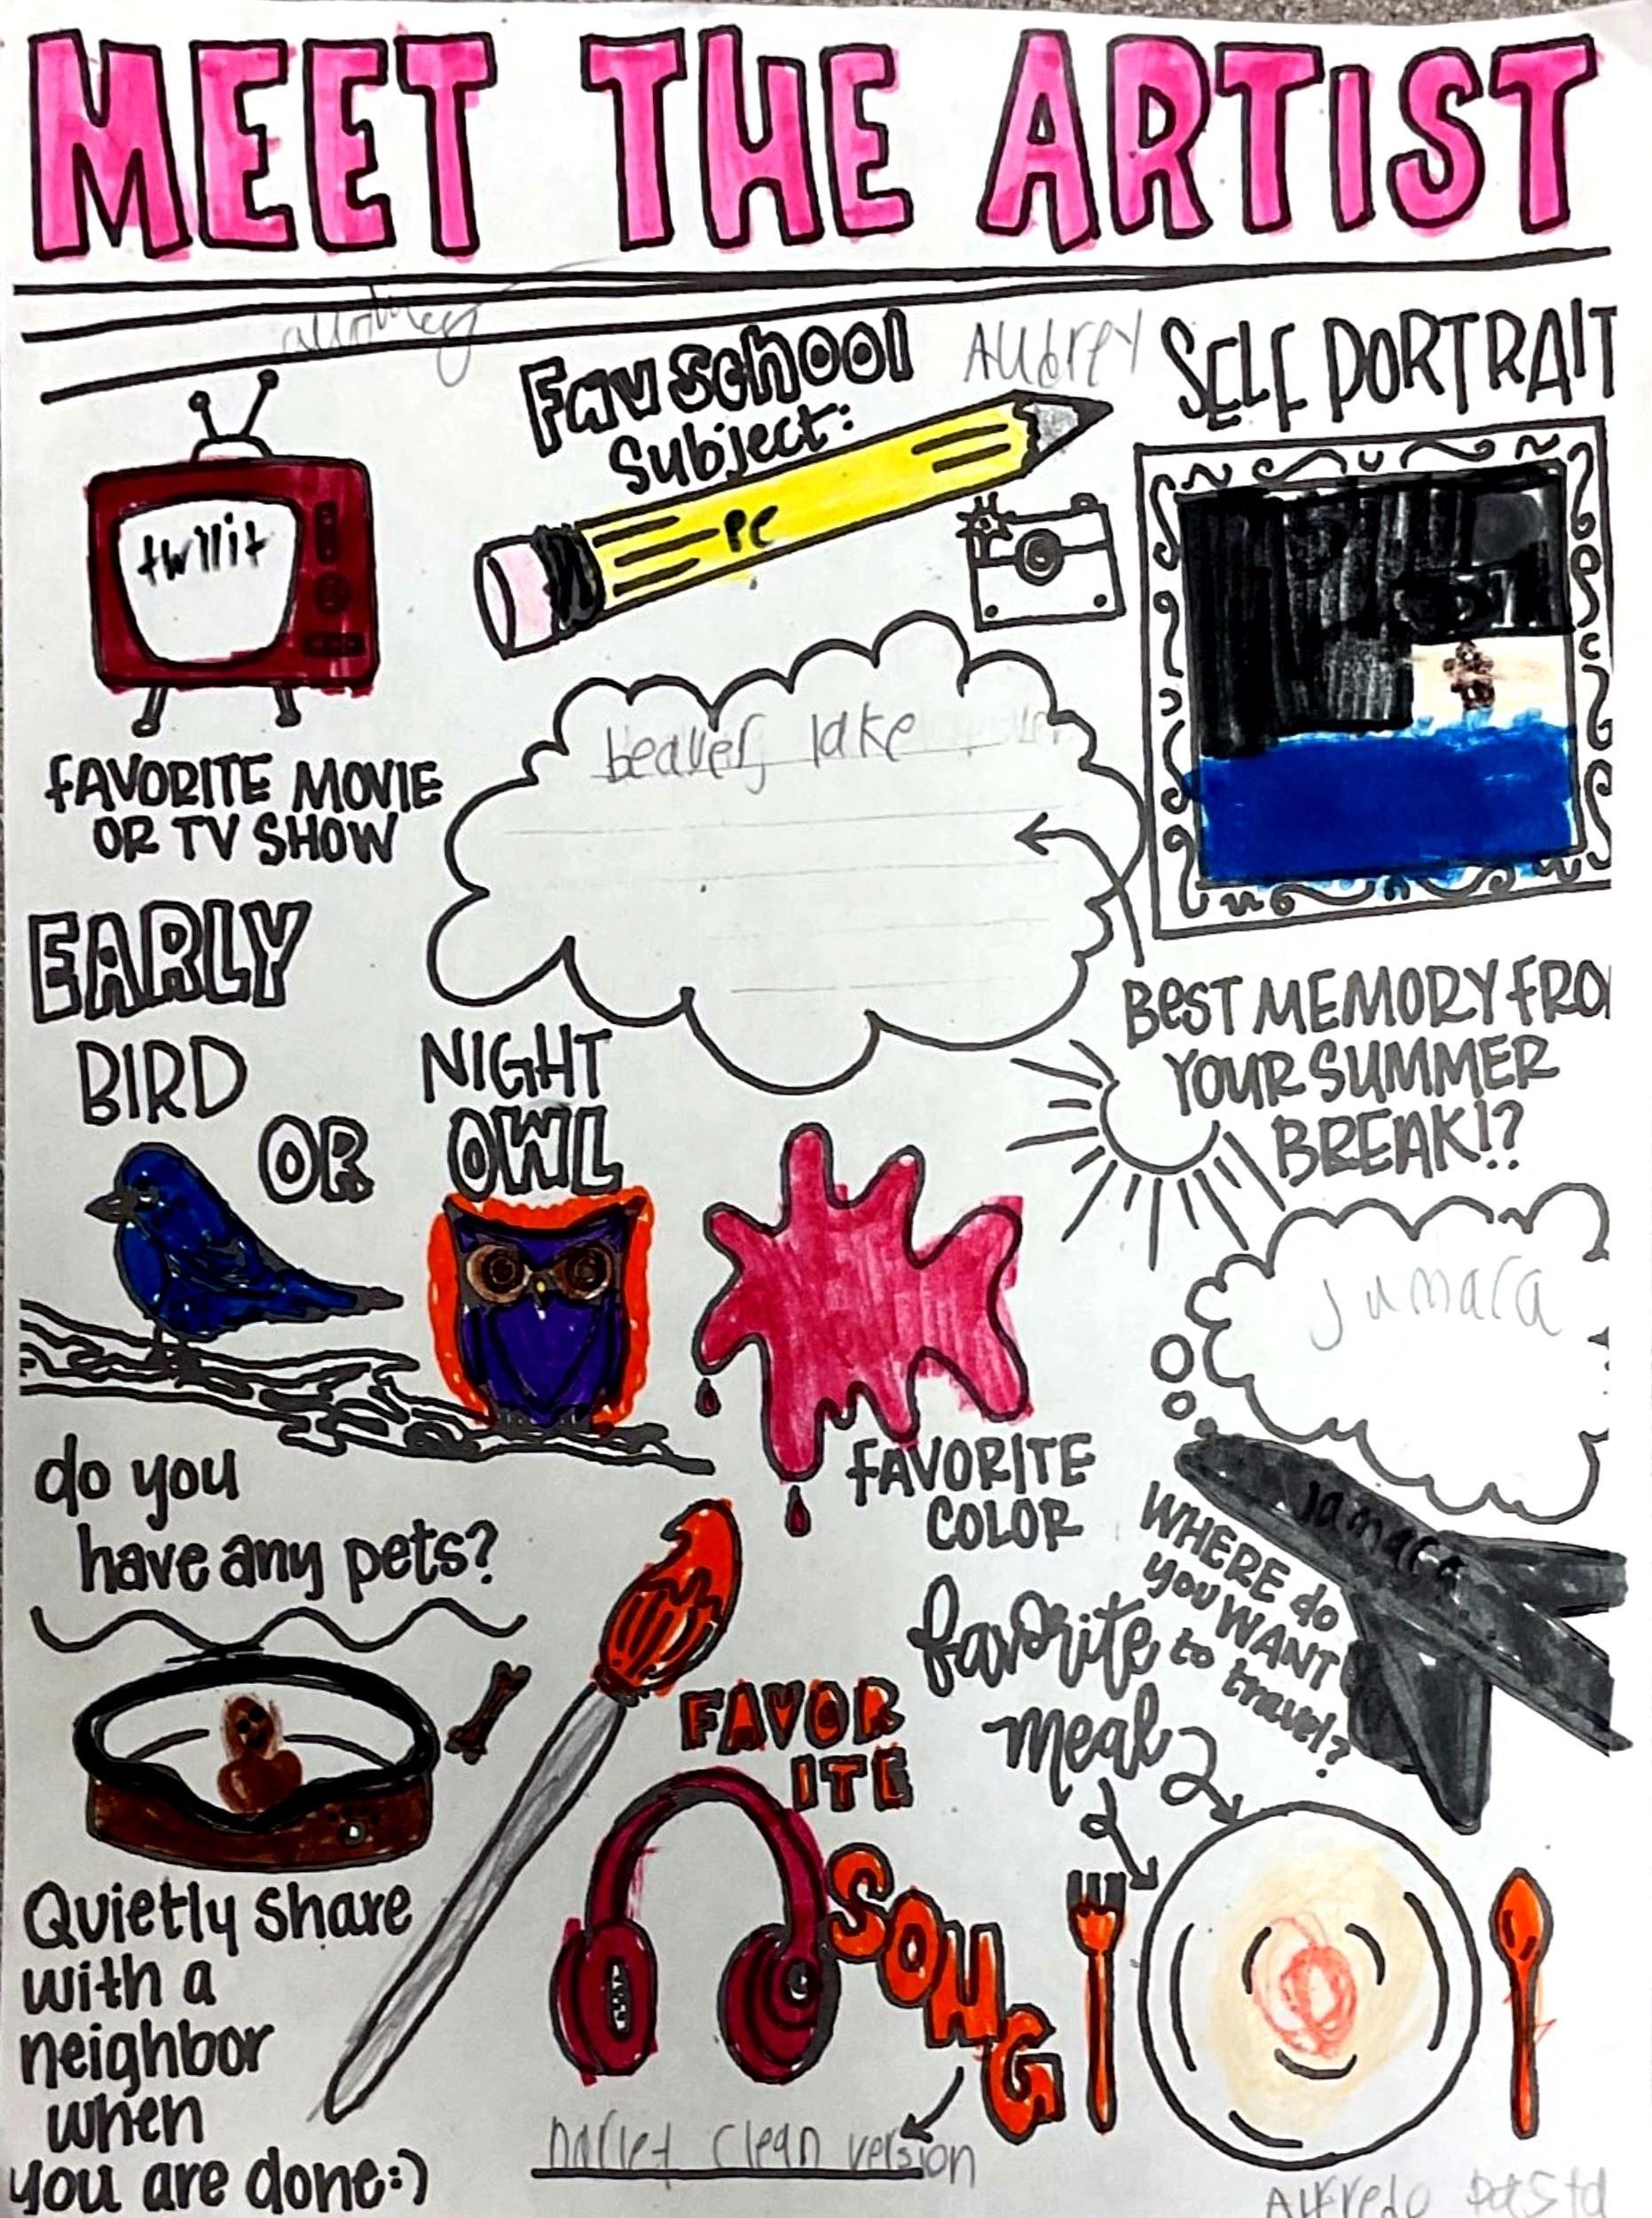 MEET THE ARTIST
Fav School
Subject:
AUdrey
SELF PORTRAIT
twilit
PE
FAVORITE MOVIE
OR TV SHOW
beaver lake
EARLY
BIRD
OR
NIGHT
OWL
BEST MEMORY FRO
YOUR SUMMER
BREAK!?
Jumaca
FAVORITE
COLOR
do you
have any pets?
Jamaca
WHERE do
you WANT
to travel?
favorite
meal
FAVOR
ITE
SONG
Quietly share
with a
neighbor
when
you are done:)
clean version
Alfredo Pasta